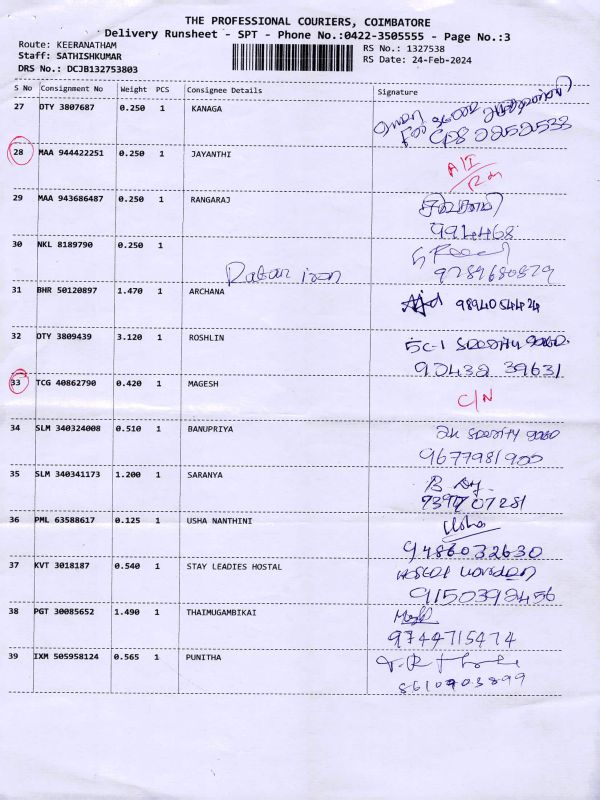 THE PROFESSIONAL COURIERS, COIMBATORE
Delivery Runsheet - SPT - Phone No.:0422-3505555 - Page No.:3
Route: KEERANATHAM
RS No.: 1327538
Staff: SATHISHKUMAR
RS Date: 24-Feb-2024
DRS No.: DCJB132753803
S No Consignment No Weight PCS Consignee Details Signature
27 OTY 3807687 0.250 1 KANAGA
28 MAA 944422251 0.250 1 JAYANTHI
29 MAA 943686487 0.250 1 RANGARAJ
30 NKL 8189790 0.250 1
9789680879
31 BHR 50120897 1.470 1 ARCHANA
32 OTY 3809439 3.120 1 ROSHLIN
90438 39631
33 TCG 40862790 0.420 1 MAGESH C/N
34 SLM 340324008 0.510 1 BANUPRIYA
9677981900
35 SLM 340341173 1.200 1 SARANYA
36 PML 63588617 0.125 1 USHA NANTHINI Usha
9486032630
37 KVT 3018187 0.540 1 STAY LEADIES HOSTAL
9150398456
38 PGT 30085652 1.490 1 THAIMUGAMBIKAI
9744715474
39 IXM 505958124 0.565 1 PUNITHA
8610903899